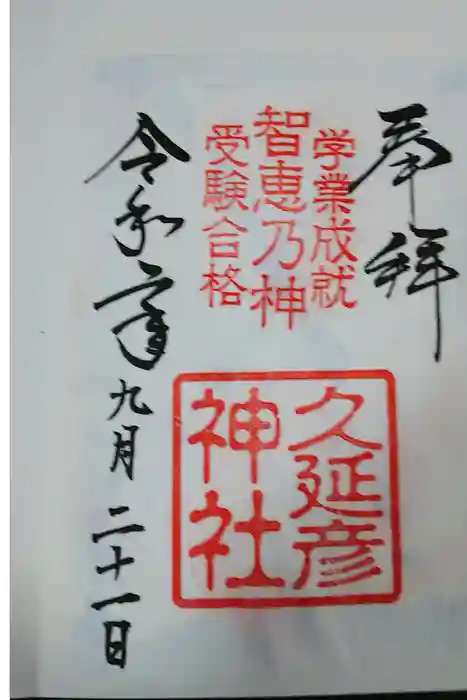 奉拝
学業成就
智恵乃神
受験合格
久延彦
神社
令和二年
九月二十一日